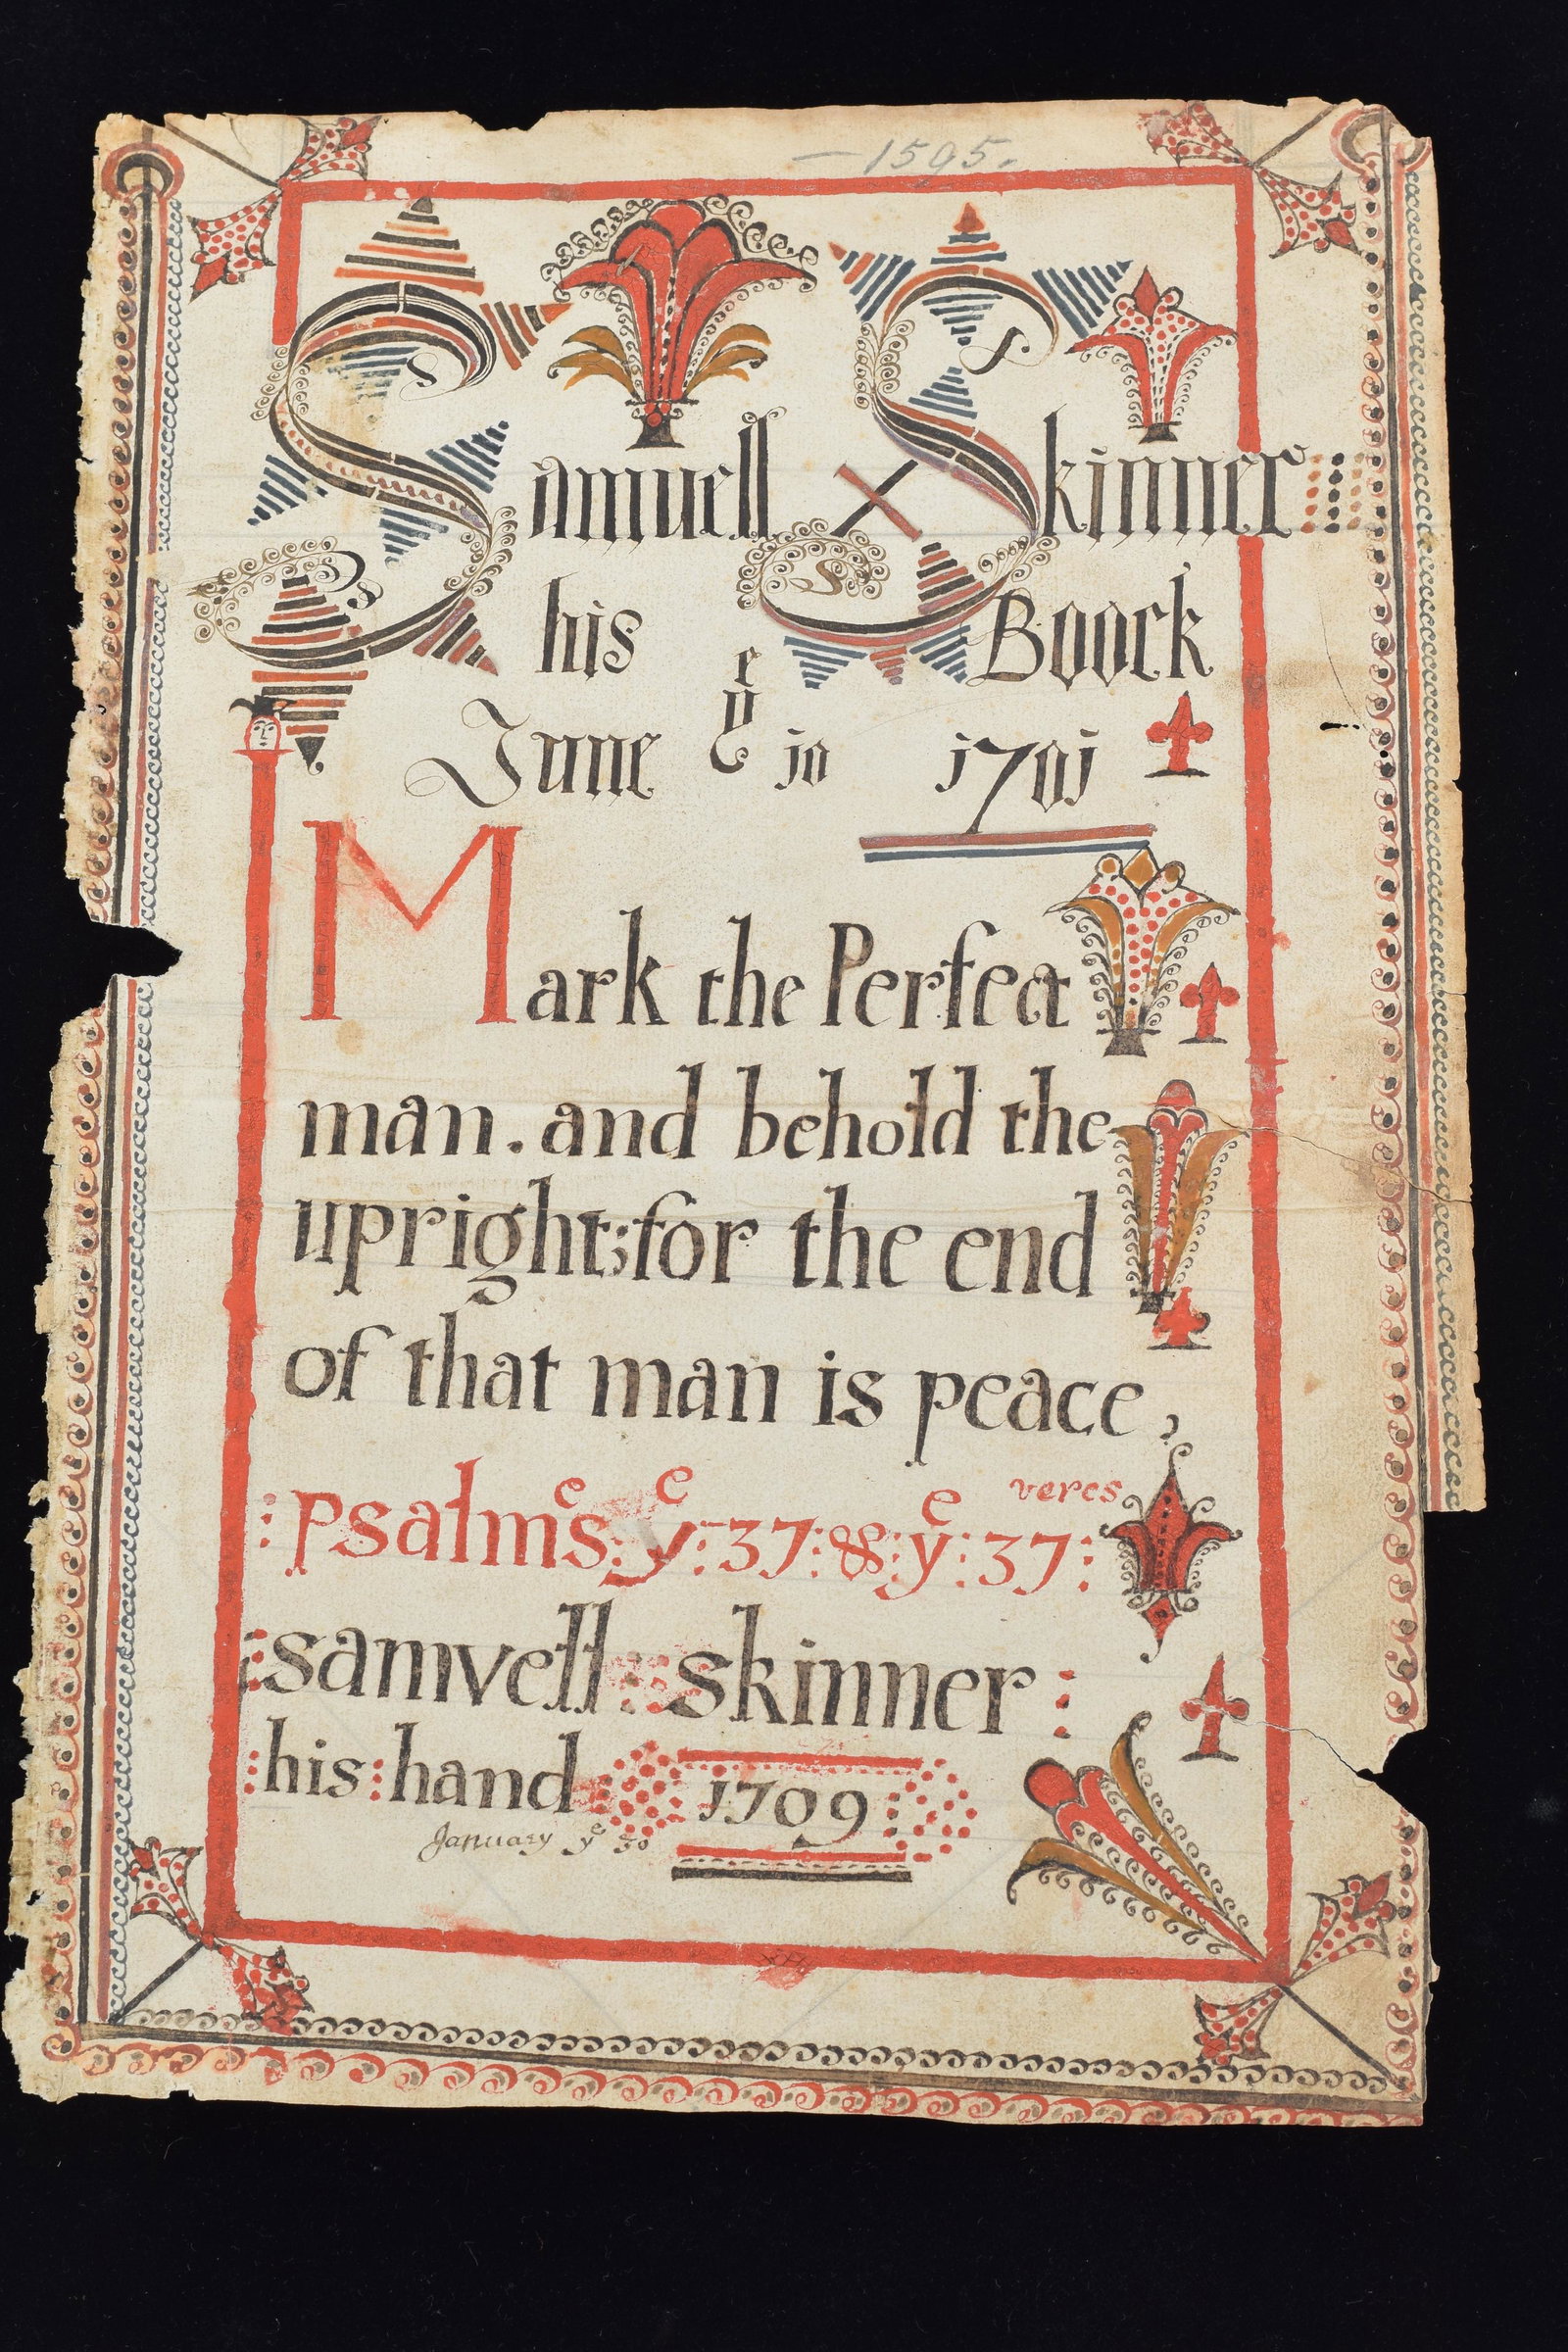 1595.
Samuell Skinner
his Boock
June yᵉ 10 1701
Mark the Perfect
man. and behold the
upright; for the end
of that man is peace,
:psalmᵉs: yᵉ: 37: &: yᵉ: 37: veres
:samvell: skinner:
:his: hand: 1709
January yᵉ 30